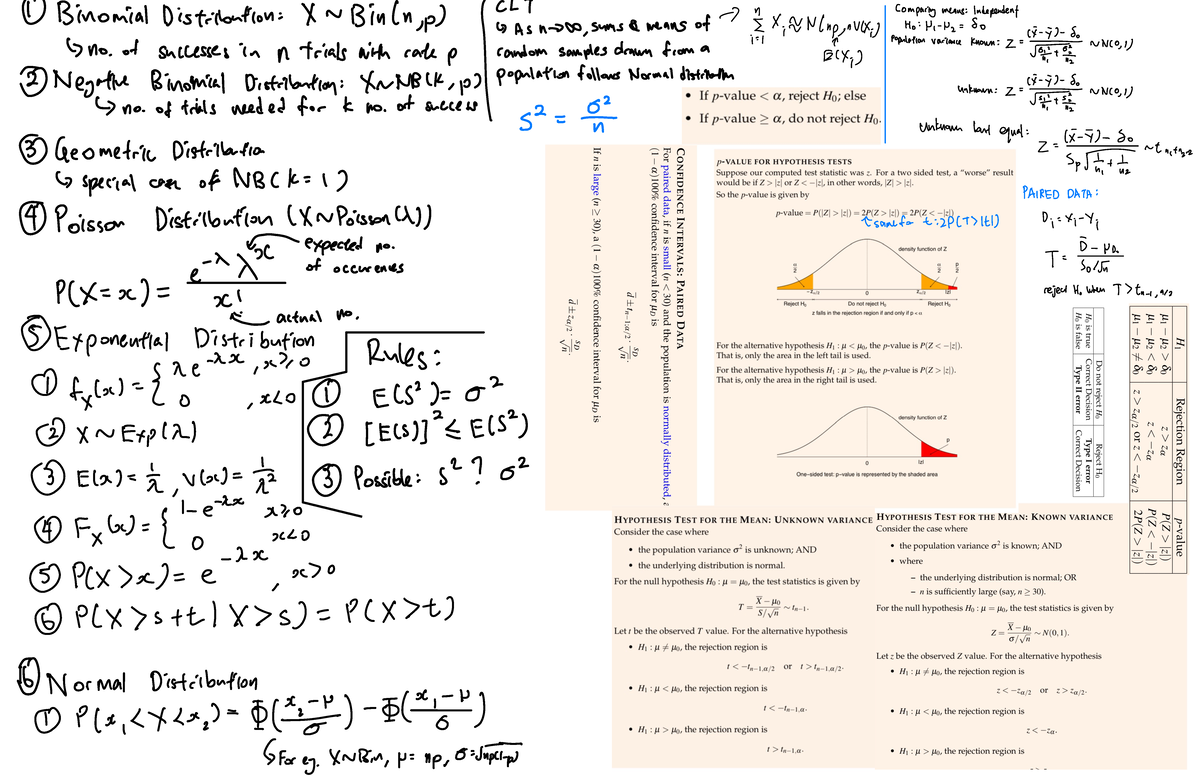 ① Binomial Distribution: X ~ Bin(n,p)
↳ no. of successes in n trials with rate p
② Negative Binomial Distribution: X~NB(k,p)
↳ no. of trials needed for k no. of success
③ Geometric Distribution
↳ special case of NB(k=1)
④ Poisson Distribution (X~Poisson(λ))
P(X=x) = e^-λ λ^x / x!
expected no. of occurences
actual no.
⑤ Exponential Distribution
① f_X(x) = { λe^-λx , x≥0
0 , x<0
② X ~ Exp(λ)
③ E(x) = 1/λ , V(x) = 1/λ²
④ F_X(x) = { 1-e^-λx x≥0
0 x<0
⑤ P(X>x) = e^-λx , x>0
⑥ P(X>s+t | X>s) = P(X>t)
Rules:
① E(S²) = σ²
② [E(S)]² ≤ E(S²)
③ Possible: S² ? σ²
⑥ Normal Distribution
① P(x₁<X<x₂) = Φ((x₂-μ)/σ) - Φ((x₁-μ)/σ)
↳ For eg. X~Bin, μ= np, σ=√np(1-p)
CLT
↳ As n→∞, sums & means of
random samples drawn from a
population follows Normal distribution
→ n Σ i=1 X_i ≈ N(np, nV(X_i)
E(X_i)
S² = σ²/n
• If p-value < α, reject H₀; else
• If p-value ≥ α, do not reject H₀.
CONFIDENCE INTERVALS: PAIRED DATA
For paired data, if n is small (n < 30) and the population is normally distributed, a
(1 − α)100% confidence interval for μ_D is
d̄ ± t_{n−1;α/2} · s_D/√n.
If n is large (n ≥ 30), a (1 − α)100% confidence interval for μ_D is
d̄ ± z_{α/2} · s_D/√n.
p-VALUE FOR HYPOTHESIS TESTS
Suppose our computed test statistic was z. For a two sided test, a “worse” result
would be if Z > |z| or Z < −|z|, in other words, |Z| > |z|.
So the p-value is given by
p-value = P(|Z| > |z|) = 2P(Z > |z|) = 2P(Z < −|z|).
↑ same for t: 2P(T>|t|)
density function of Z
α/2
α/2
p/2
−z_{α/2}
0
z_{α/2}
|z|
Reject H₀
Do not reject H₀
Reject H₀
z falls in the rejection region if and only if p < α
For the alternative hypothesis H₁ : μ < μ₀, the p-value is P(Z < −|z|).
That is, only the area in the left tail is used.
For the alternative hypothesis H₁ : μ > μ₀, the p-value is P(Z > |z|).
That is, only the area in the right tail is used.
density function of Z
p
0
|z|
One−sided test: p−value is represented by the shaded area
Comparing means: Independent
H₀: μ₁-μ₂ = δ₀
Population variance known: Z = (x̄-ȳ)-δ₀ / √(σ₁²/n₁ + σ₂²/n₂) ~N(0,1)
unknown: Z = (x̄-ȳ)-δ₀ / √(s₁²/n₁ + s₂²/n₂) ~N(0,1)
Unknown but equal:
Z = (x̄-ȳ)-δ₀ / S_p√(1/n₁ + 1/n₂) ~ t_{n₁+n₂-2}
PAIRED DATA:
D_i = X_i-Y_i
T = D̄-μ_D / S_D/√n
reject H₀ when T > t_{n-1, α/2}
Do not reject H₀ Reject H₀
H₀ is true Correct Decision Type I error
H₀ is false Type II error Correct Decision
H₁ Rejection Region p-value
μ₁ − μ₂ > δ₀ z > z_α P(Z > |z|)
μ₁ − μ₂ < δ₀ z < −z_α P(Z < −|z|)
μ₁ − μ₂ ≠ δ₀ z > z_{α/2} or z < −z_{α/2} 2P(Z > |z|)
HYPOTHESIS TEST FOR THE MEAN: UNKNOWN VARIANCE
Consider the case where
• the population variance σ² is unknown; AND
• the underlying distribution is normal.
For the null hypothesis H₀ : μ = μ₀, the test statistics is given by
T = X̄ − μ₀ / S/√n ~ t_{n−1}.
Let t be the observed T value. For the alternative hypothesis
• H₁ : μ ≠ μ₀, the rejection region is
t < −t_{n−1,α/2} or t > t_{n−1,α/2}.
• H₁ : μ < μ₀, the rejection region is
t < −t_{n−1,α}.
• H₁ : μ > μ₀, the rejection region is
t > t_{n−1,α}.
HYPOTHESIS TEST FOR THE MEAN: KNOWN VARIANCE
Consider the case where
• the population variance σ² is known; AND
• where
– the underlying distribution is normal; OR
– n is sufficiently large (say, n ≥ 30).
For the null hypothesis H₀ : μ = μ₀, the test statistics is given by
Z = X̄ − μ₀ / σ/√n ~ N(0,1).
Let z be the observed Z value. For the alternative hypothesis
• H₁ : μ ≠ μ₀, the rejection region is
z < −z_{α/2} or z > z_{α/2}.
• H₁ : μ < μ₀, the rejection region is
z < −z_α.
• H₁ : μ > μ₀, the rejection region is